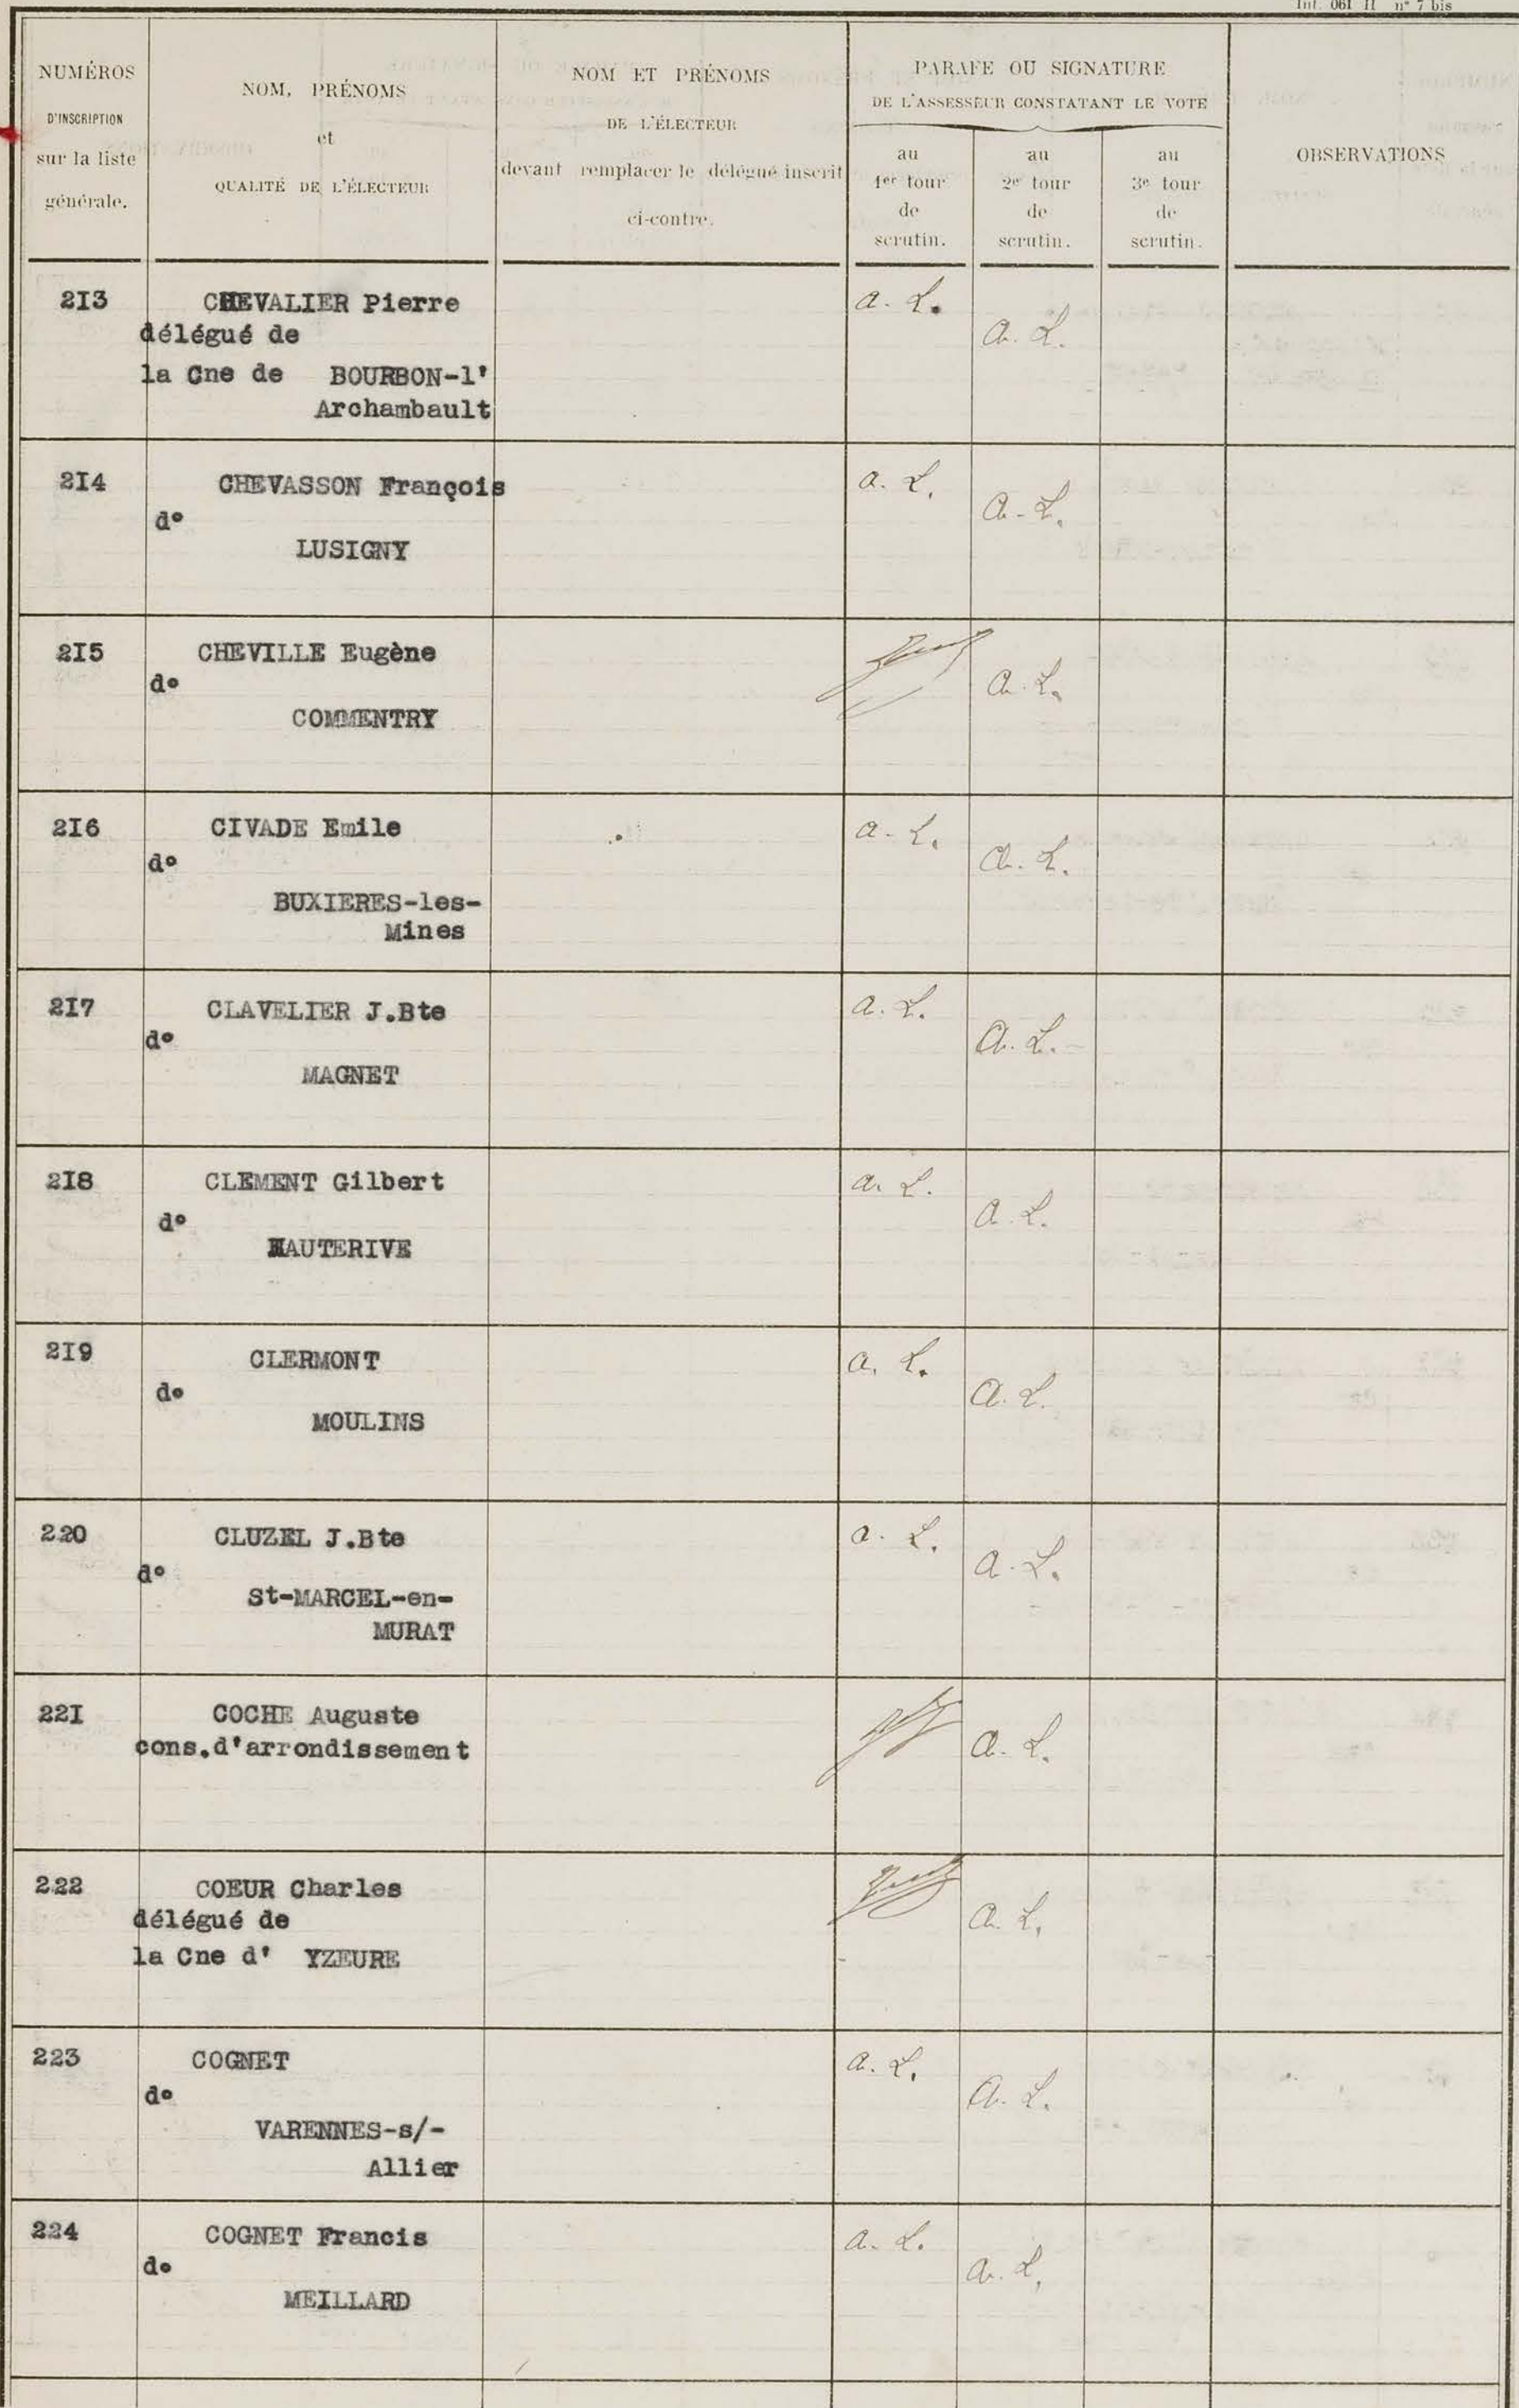 Int. 061 II n° 7 bis
NUMÉROS
D'INSCRIPTION
sur la liste
générale.
NOM, PRÉNOMS
et
QUALITÉ DE L'ÉLECTEUR
NOM ET PRÉNOMS
DE L'ÉLECTEUR
devant remplacer le délégué inscrit
ci-contre.
PARAFE OU SIGNATURE
DE L'ASSESSEUR CONSTATANT LE VOTE
au
1er tour
de
scrutin.
au
2e tour
de
scrutin.
au
3e tour
de
scrutin.
OBSERVATIONS
213 CHEVALIER Pierre a. L.
délégué de A. L.
la Cne de BOURBON-l'
Archambault
214 CHEVASSON François a. L.
d° A. L.
LUSIGNY
215 CHEVILLE Eugène
d° A. L.
COMMENTRY
216 CIVADE Emile a. L.
d° A. L.
BUXIERES-les-
Mines
217 CLAVELIER J.Bte a. L.
d° A. L.
MAGNET
218 CLEMENT Gilbert a. L.
d° A. L.
HAUTERIVE
219 CLERMONT a. L.
d° A. L.
MOULINS
220 CLUZEL J.Bte a. L.
d° A. L.
St-MARCEL-en-
MURAT
221 COCHE Auguste
cons.d'arrondissement A. L.
222 COEUR Charles
délégué de A. L.
la Cne d' YZEURE
223 COGNET a. L.
d° A. L.
VARENNES-s/-
Allier
224 COGNET Francis a. L.
d° a. L.
MEILLARD